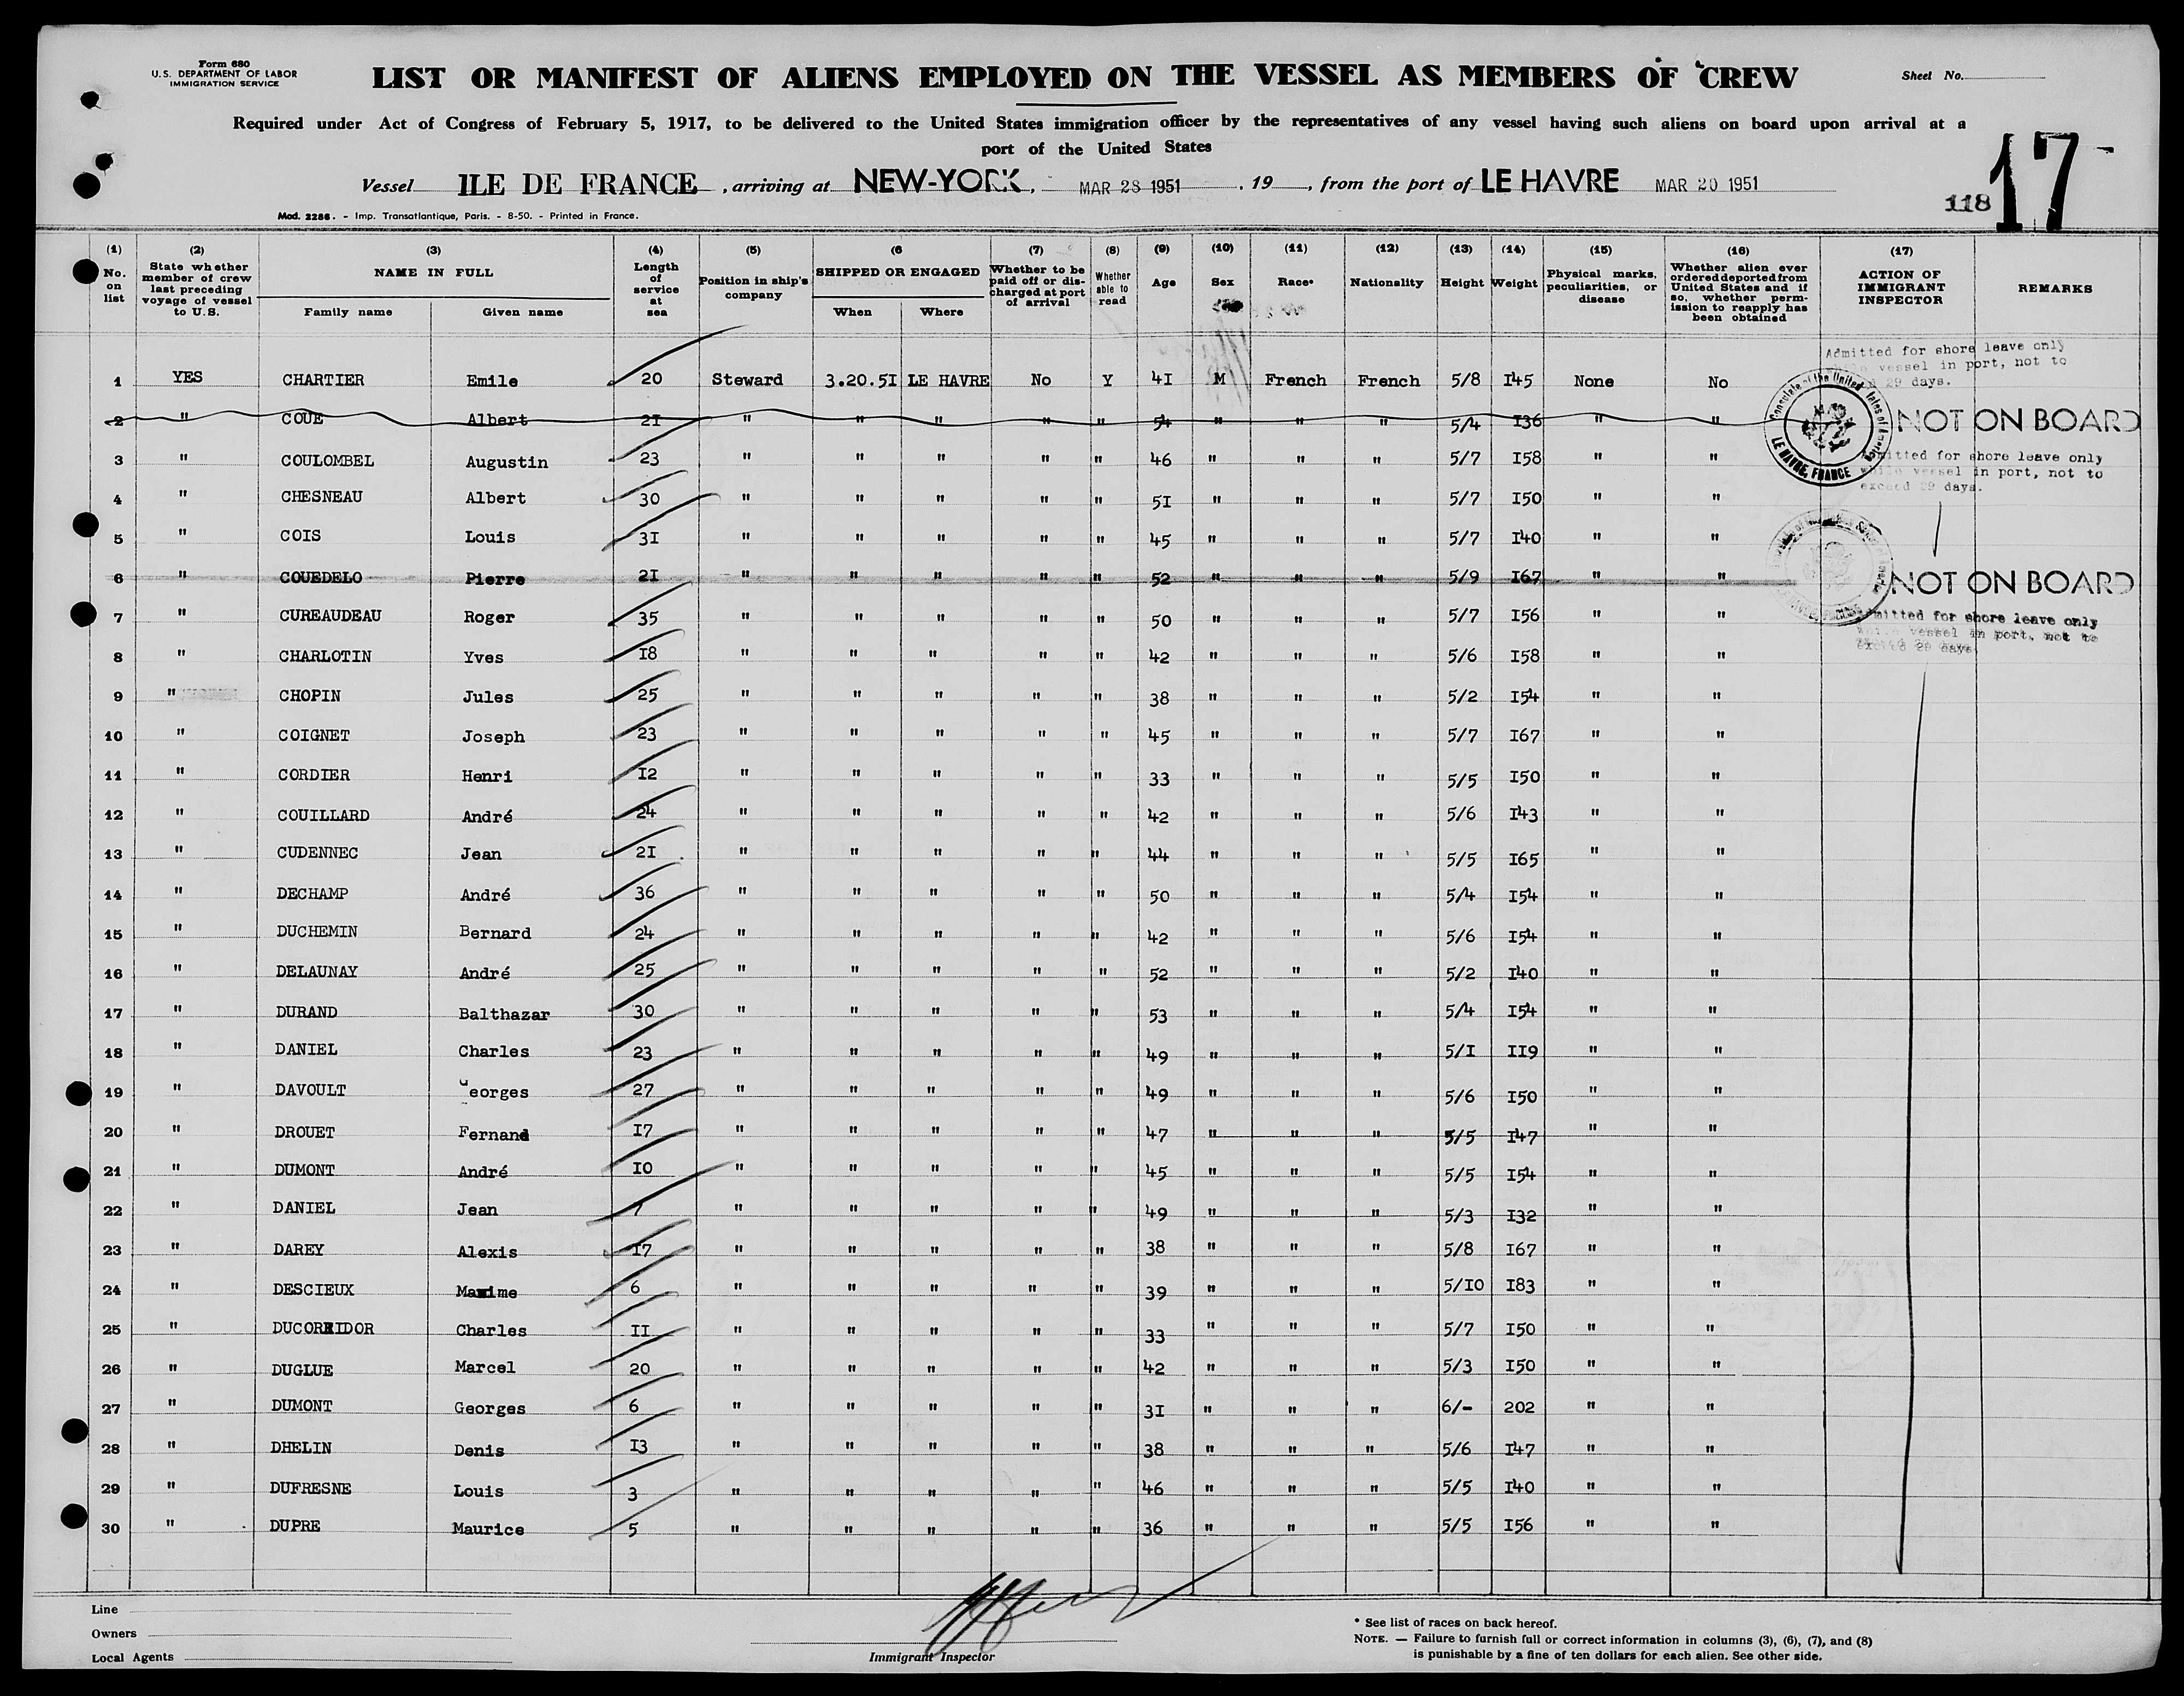 Form 680
U.S. DEPARTMENT OF LABOR
IMMIGRATION SERVICE
LIST OR MANIFEST OF ALIENS EMPLOYED ON THE VESSEL AS MEMBERS OF CREW
Sheet No.
Required under Act of Congress of February 5, 1917, to be delivered to the United States immigration officer by the representatives of any vessel having such aliens on board upon arrival at a
port of the United States
Vessel ILE DE FRANCE, arriving at NEW-YORK, MAR 28 1951, 19 , from the port of LE HAVRE MAR 20 1951
118 17
Mod. 2286. - Imp. Transatlantique, Paris. - 8-50. - Printed in France.
(1) No. on list
(2) State whether member of crew last preceding voyage of vessel to U.S.
(3) NAME IN FULL Family name Given name
(4) Length of service at sea
(5) Position in ship's company
(6 SHIPPED OR ENGAGED When Where
(7) Whether to be paid off or discharged at port of arrival
(8) Whether able to read
(9) Age
(10) Sex
(11) Race*
(12) Nationality
(13) Height
(14) Weight
(15) Physical marks, peculiarities, or disease
(16) Whether alien ever ordered deported from United States and if so, whether permission to reapply has been obtained
(17) ACTION OF IMMIGRANT INSPECTOR
REMARKS
1 YES CHARTIER Emile 20 Steward 3.20.5I LE HAVRE No Y 4I M French French 5/8 I45 None No Admitted for shore leave only vessel in port, not to 29 days.
2 " COUE Albert 2I " " " " " 54 " " " 5/4 I36 " " NOT ON BOARD
3 " COULOMBEL Augustin 23 " " " " " 46 " " " 5/7 I58 " " Admitted for shore leave only while vessel in port, not to
4 " CHESNEAU Albert 30 " " " " " 5I " " " 5/7 I50 " " exceed 29 days.
5 " COIS Louis 3I " " " " " 45 " " " 5/7 I40 " "
6 " COUEDELO Pierre 2I " " " " " 52 " " " 5/9 I67 " " NOT ON BOARD
7 " CUREAUDEAU Roger 35 " " " " " 50 " " " 5/7 I56 " " Admitted for shore leave only
8 " CHARLOTIN Yves I8 " " " " " 42 " " " 5/6 I58 " " while vessel in port, not to exceed 29 days.
9 " CHOPIN Jules 25 " " " " " 38 " " " 5/2 I54 " "
10 " COIGNET Joseph 23 " " " " " 45 " " " 5/7 I67 " "
11 " CORDIER Henri I2 " " " " " 33 " " " 5/5 I50 " "
12 " COUILLARD André 24 " " " " " 42 " " " 5/6 I43 " "
13 " CUDENNEC Jean 2I " " " " " 44 " " " 5/5 I65 " "
14 " DECHAMP André 36 " " " " " 50 " " " 5/4 I54 " "
15 " DUCHEMIN Bernard 24 " " " " " 42 " " " 5/6 I54 " "
16 " DELAUNAY André 25 " " " " " 52 " " " 5/2 I40 " "
17 " DURAND Balthazar 30 " " " " " 53 " " " 5/4 I54 " "
18 " DANIEL Charles 23 " " " " " 49 " " " 5/I II9 " "
19 " DAVOULT Georges 27 " " " " " 49 " " " 5/6 I50 " "
20 " DROUET Fernand I7 " " " " " 47 " " " 5/5 I47 " "
21 " DUMONT André I0 " " " " " 45 " " " 5/5 I54 " "
22 " DANIEL Jean 7 " " " " " 49 " " " 5/3 I32 " "
23 " DAREY Alexis I7 " " " " " 38 " " " 5/8 I67 " "
24 " DESCIEUX Maxime 6 " " " " " 39 " " " 5/I0 I83 " "
25 " DUCORRIDOR Charles II " " " " " 33 " " " 5/7 I50 " "
26 " DUGLUE Marcel 20 " " " " " 42 " " " 5/3 I50 " "
27 " DUMONT Georges 6 " " " " " 3I " " " 6/- 202 " "
28 " DHELIN Denis I3 " " " " " 38 " " " 5/6 I47 " "
29 " DUFRESNE Louis 3 " " " " " 46 " " " 5/5 I40 " "
30 " DUPRE Maurice 5 " " " " " 36 " " " 5/5 I56 " "
Consulate of the United States of America
LE HAVRE, FRANCE
Line
Owners
Local Agents
Immigrant Inspector
* See list of races on back hereof.
NOTE. — Failure to furnish full or correct information in columns (3), (6), (7), and (8)
is punishable by a fine of ten dollars for each alien. See other side.